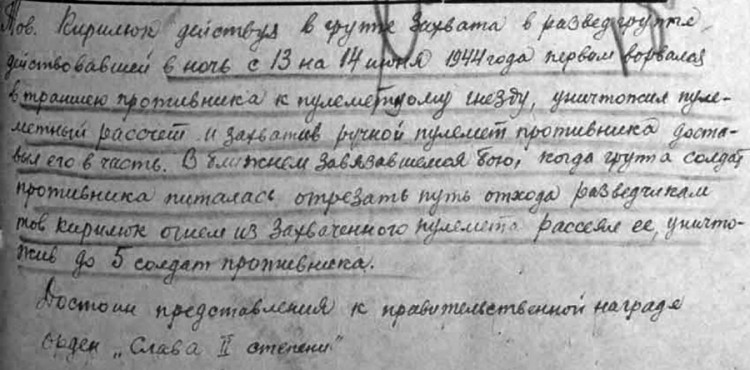 Тов. Кирилюк действуя в группе захвата в разведгруппе
действовавшей в ночь с 13 на 14 июня 1944 года первым ворвался
в траншею противника к пулеметному гнезду, уничтожил пуле-
метный рассчет и захватив ручной пулемет противника доста-
вил его в часть. В ближнем завязавшемся бою, когда группа солдат
противника питалась отрезать путь отхода разведчикам
тов Кирилюк огнем из захваченного пулемета рассеял ее, уничто-
жив до 5 солдат противника.
Достоин представления к правительственной награде
орден „Слава II степени"